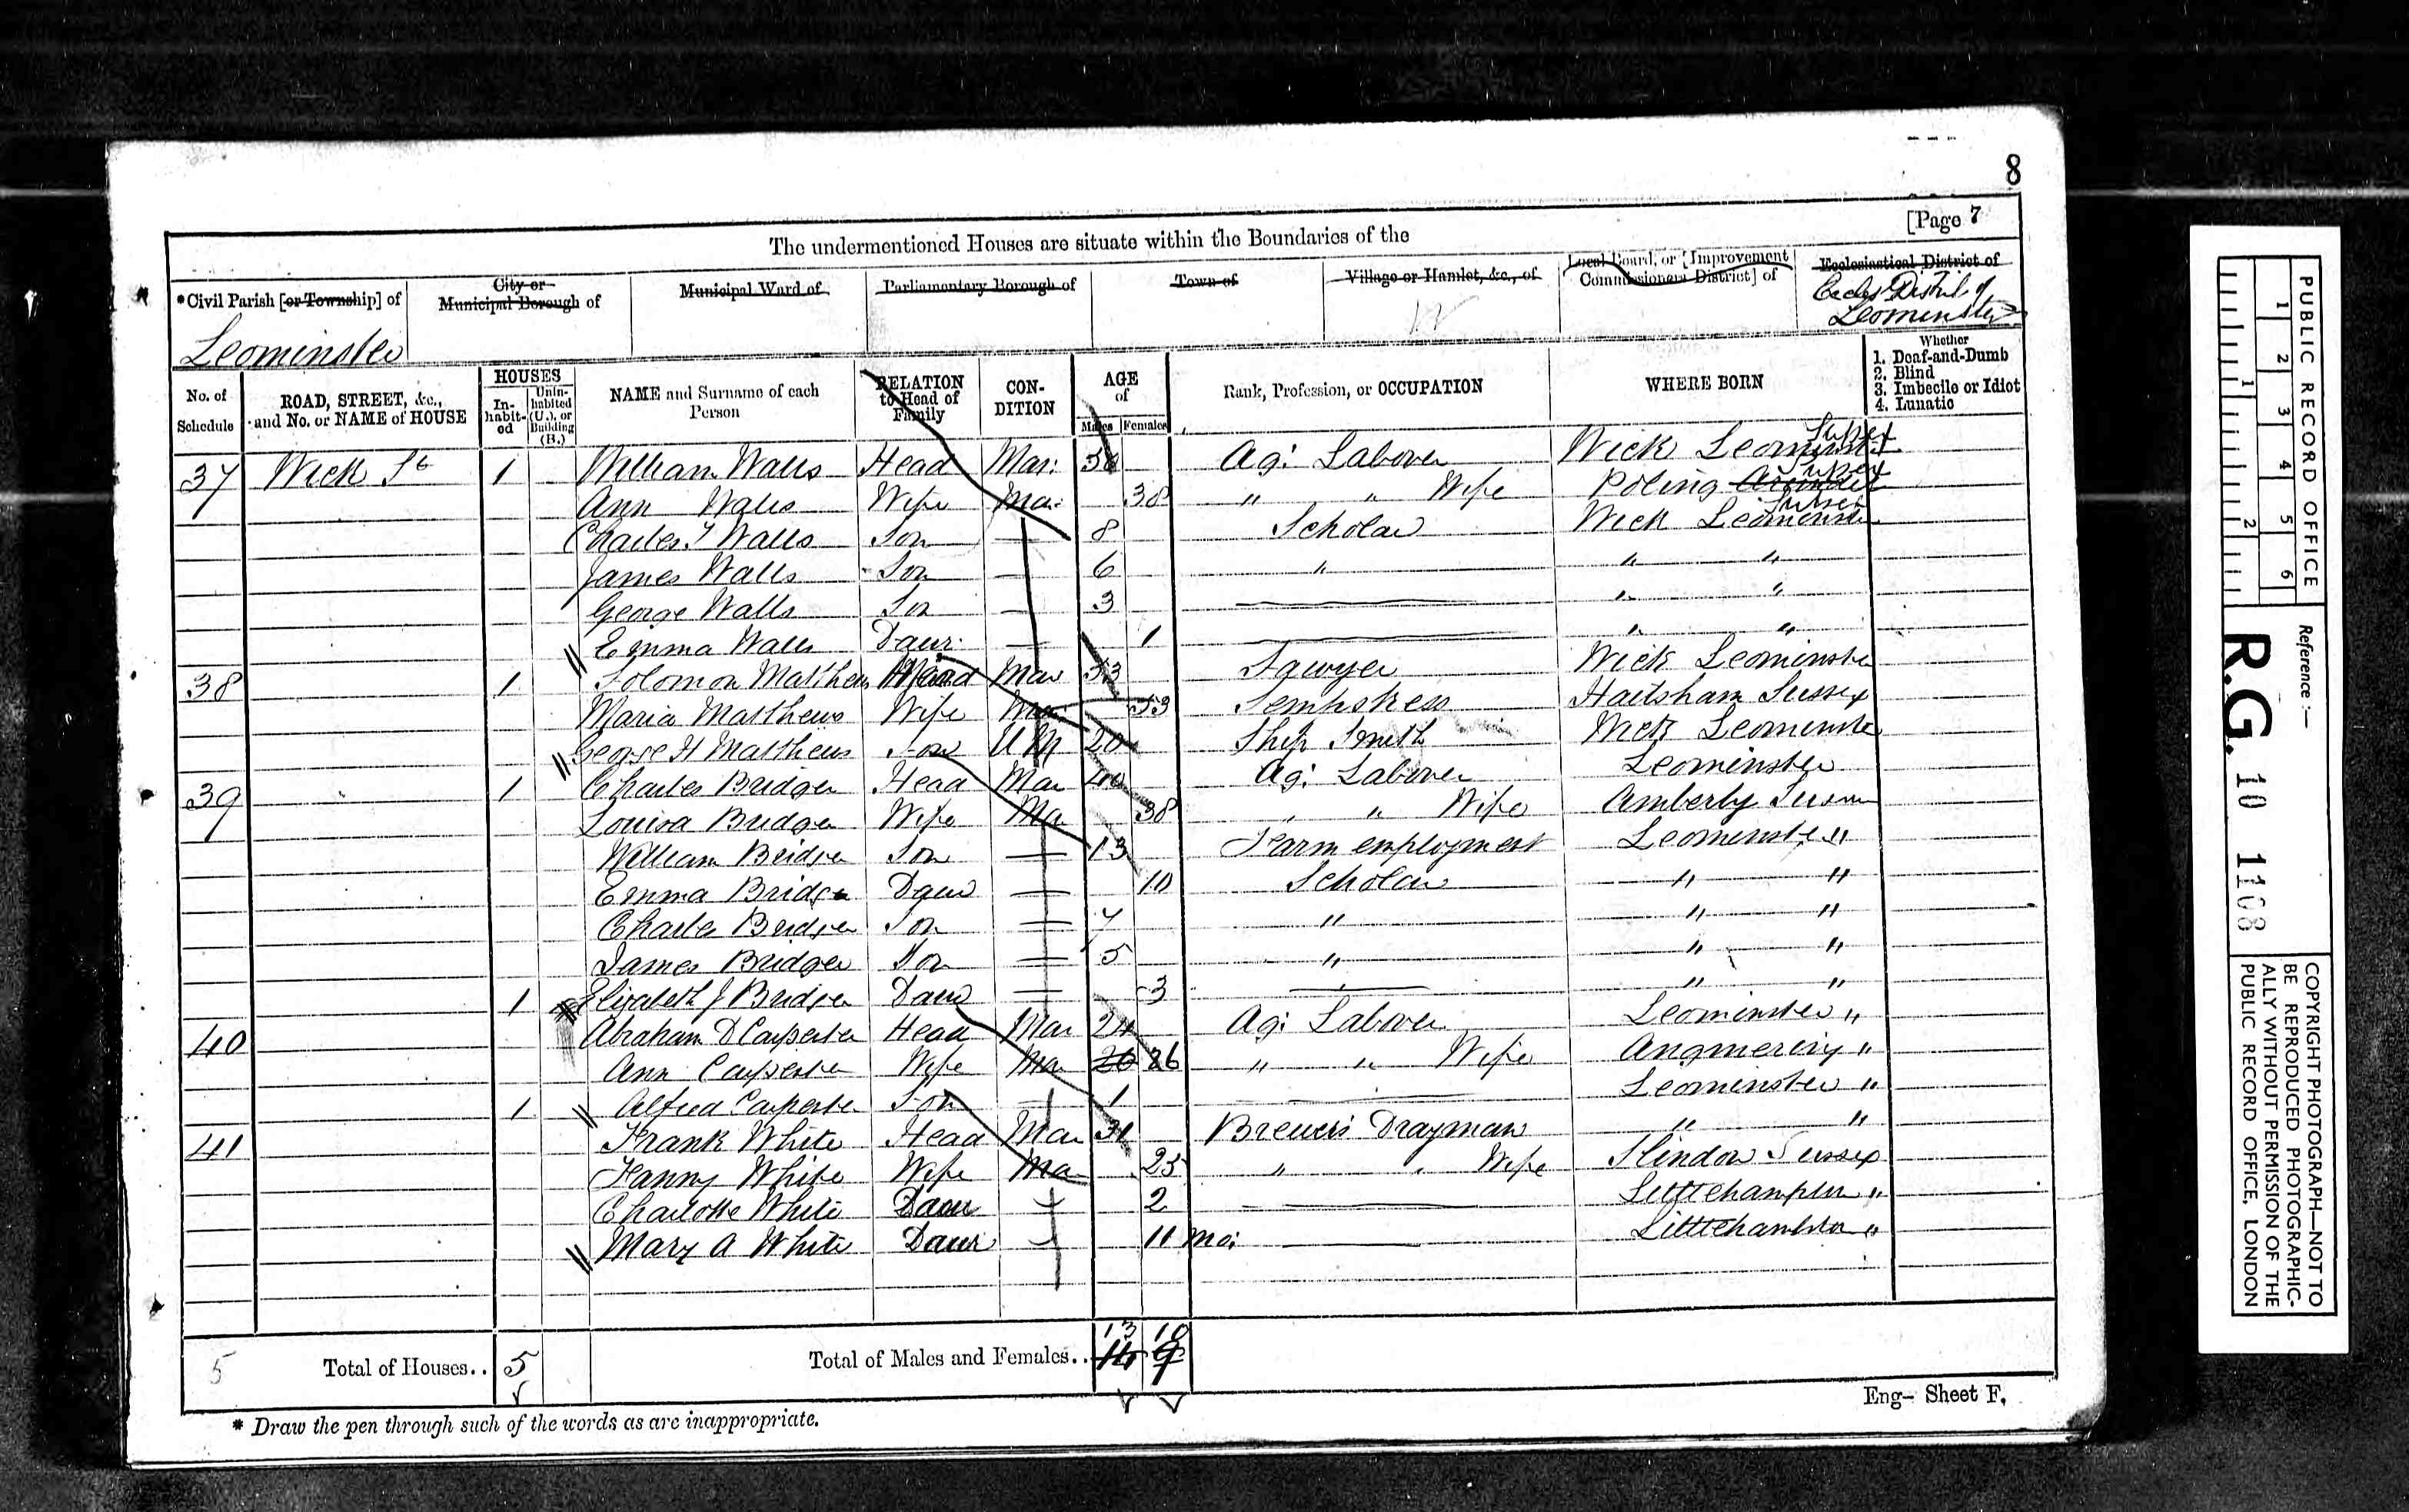 8
[Page 7
The undermentioned Houses are situate within the Boundaries of the
*Civil Parish [or Township] of
City or Municipal Borough of
Municipal Ward of
Parliamentary Borough of
Town of
Village or Hamlet, &c., of
Local Board, or [Improvement Commissioners District] of
Ecclesiastical District of
Leominster
Eccles Distric of
Leominster
No. of Schedule
ROAD, STREET, &c., and No. or NAME of HOUSE
HOUSES
In-habit-ed
Unin-habited (U.), or Building (B.)
NAME and Surname of each Person
RELATION to Head of Family
CON-DITION
AGE of
Males
Females
Rank, Profession, or OCCUPATION
WHERE BORN
Whether
1. Deaf-and-Dumb
2. Blind
3. Imbecile or Idiot
4. Lunatic
37 Wick St 1 William Walls Head Mar: Ag: Labourer Wick Leominster Sussex
Ann Walls Wife Mar: 38 " " Wife Poling Arundel Sussex
Charles Walls Son — 8 Scholar Wick Leominster Sussex
James Walls Son — 6 " " "
George Walls Son — 3 — " "
Emma Walls Daur — 1 — " "
38 1 Solomon Matthews Head Mar 53 Sawyer Wick Leominster
Maria Matthews Wife Mar 53 Sempstress Hailsham Sussex
George H Matthews Son U M 20 Ship Smith Wick Leominster
39 1 Charles Bridger Head Mar 40 Ag: Labourer Leominster
Louisa Bridger Wife Mar 38 " " Wife Amberly Sussex
William Bridger Son — 13 Farm employment Leominster "
Emma Bridger Daur — 10 Scholar " "
Charles Bridger Son — 7 " " "
James Bridger Son — 5 " " "
1 Elizabeth J Bridger Daur — 3 — " "
40 Abraham D Carpenter Head Mar 24 Ag: Labourer Leominster "
Ann Carpenter Wife Mar 26 26 " " Wife Angmering "
1 Alfred Carpenter Son — 1 — Leominster "
41 Frank White Head Mar 31 Brewers Drayman " "
Fanny White Wife Mar 25 " " Wife Slindon Sussex
Charlotte White Daur — 2 — Littlehampton "
Mary A White Daur — 11 mo: — Littlehampton "
13 10
5 Total of Houses.. 5 Total of Males and Females.. 14 9
Eng- Sheet F.
* Draw the pen through such of the words as are inappropriate.
PUBLIC RECORD OFFICE
1 2 3 4 5 6
1 2
Reference:—
R.G. 10 1108
COPYRIGHT PHOTOGRAPH—NOT TO
BE REPRODUCED PHOTOGRAPHIC-
ALLY WITHOUT PERMISSION OF THE
PUBLIC RECORD OFFICE, LONDON